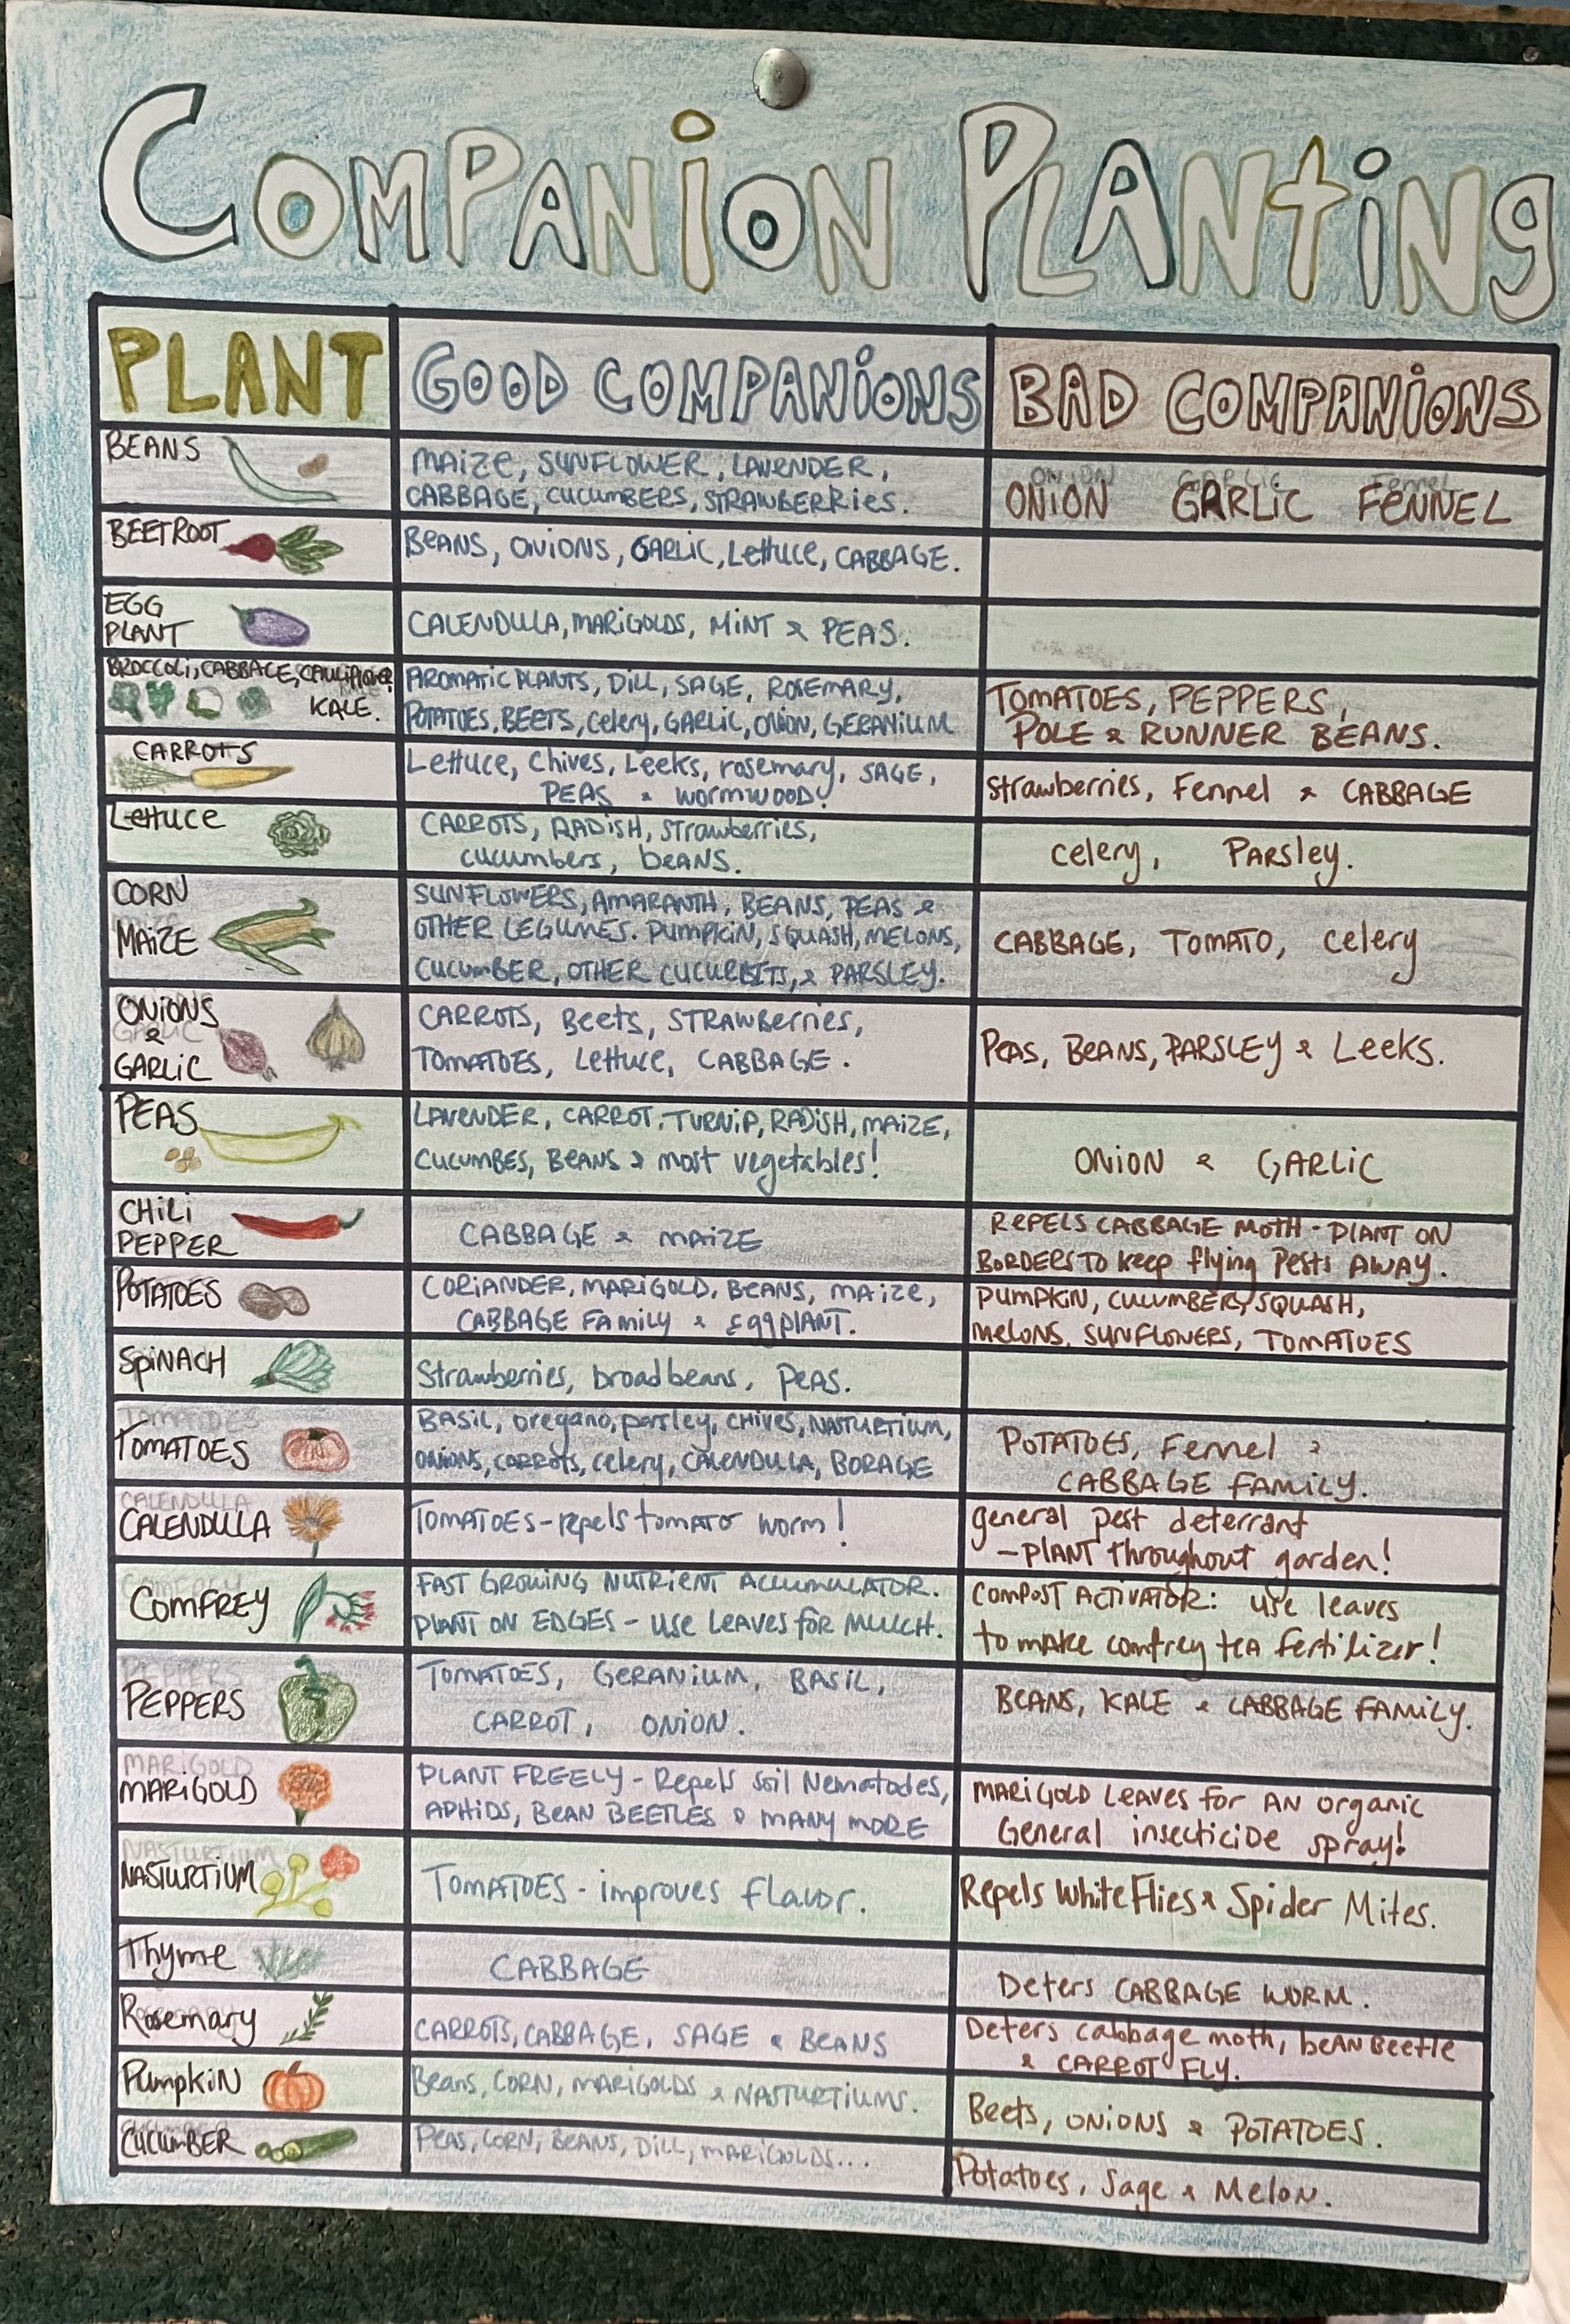 COMPANION PLANTING
PLANT GOOD COMPANIONS BAD COMPANIONS
BEANS
MAIZE, SUNFLOWER, LAVENDER,
CABBAGE, CUCUMBERS, STRAWBERRIES.
ONION GARLIC FENNEL
BEETROOT
BEANS, ONIONS, GARLIC, Lettuce, CABBAGE.
EGG
PLANT
CALENDULA, MARIGOLDS, MINT & PEAS.
BROCCOLI, CABBAGE, CAULIFLOWER
KALE.
AROMATIC PLANTS, DILL, SAGE, ROSEMARY,
POTATOES, BEETS, celery, GARLIC, ONION, GERANIUM
TOMATOES, PEPPERS,
POLE & RUNNER BEANS.
CARROTS
Lettuce, Chives, Leeks, rosemary, SAGE,
PEAS & WORMWOOD!
Strawberries, Fennel & CABBAGE
Lettuce
CARROTS, RADISH, Strawberries,
cucumbers, beans.
celery, Parsley.
CORN
MAIZE
SUNFLOWERS, AMARANTH, BEANS, PEAS &
OTHER LEGUMES. PUMPKIN, SQUASH, MELONS,
CUCUMBER, OTHER CUCURBITS, & PARSLEY.
CABBAGE, TOMATO, celery
ONIONS
&
GARLIC
CARROTS, Beets, STRAWBerries,
TOMATOES, Lettuce, CABBAGE.
Peas, BEANS, PARSLEY & Leeks.
PEAS
LAVENDER, CARROT, TURNIP, RADISH, MAIZE,
CUCUMBES, BEANS & most vegetables!
ONION & GARLIC
CHILI
PEPPER
CABBAGE & MAIZE
REPELS CABBAGE MOTH - PLANT ON
BORDERS TO keep flying Pests AWAY.
POTATOES
CORIANDER, MARIGOLD, BEANS, MAIZE,
CABBAGE FAMILY & EggPLANT.
PUMPKIN, CUCUMBER, SQUASH,
MELONS, SUNFLOWERS, TOMATOES
SPINACH
Strawberries, broadbeans, Peas.
TOMATOES
BASIL, oregano, parsley, CHIVES, NASTURTIUM,
ONIONS, CARROTS, celery, CALENDULA, BORAGE
POTATOES, Fennel &
CABBAGE FAMILY.
CALENDULA
TOMATOES - repels tomato worm!
general pest deterrant
- PLANT throughout garden!
COMFREY
FAST GROWING NUTRIENT ACCUMULATOR.
PLANT ON EDGES - Use LEAVES FOR MULCH.
COMPOST ACTIVATOR: use leaves
to make comfrey tea fertilizer!
PEPPERS
TOMATOES, GERANIUM, BASIL,
CARROT, ONION.
BEANS, KALE & CABBAGE FAMILY.
MARIGOLD
PLANT FREELY - Repels Soil Nematodes,
APHIDS, BEAN BEETLES & MANY MORE
MARIGOLD LEAVES for AN organic
General insecticide spray!
NASTURTIUM
TOMATOES - improves flavor.
Repels White Flies & Spider Mites.
Thyme
CABBAGE
Deters CABBAGE WORM.
Rosemary
CARROTS, CABBAGE, SAGE & BEANS
Deters cabbage moth, beAN Beetle
& CARROT FLY.
PUMPKIN
Beans, CORN, MARIGOLDS & NASTURTIUMS.
Beets, ONIONS & POTATOES.
CUCUMBER
PEAS, CORN, BEANS, DILL, MARIGOLDS...
Potatoes, Sage & Melon.